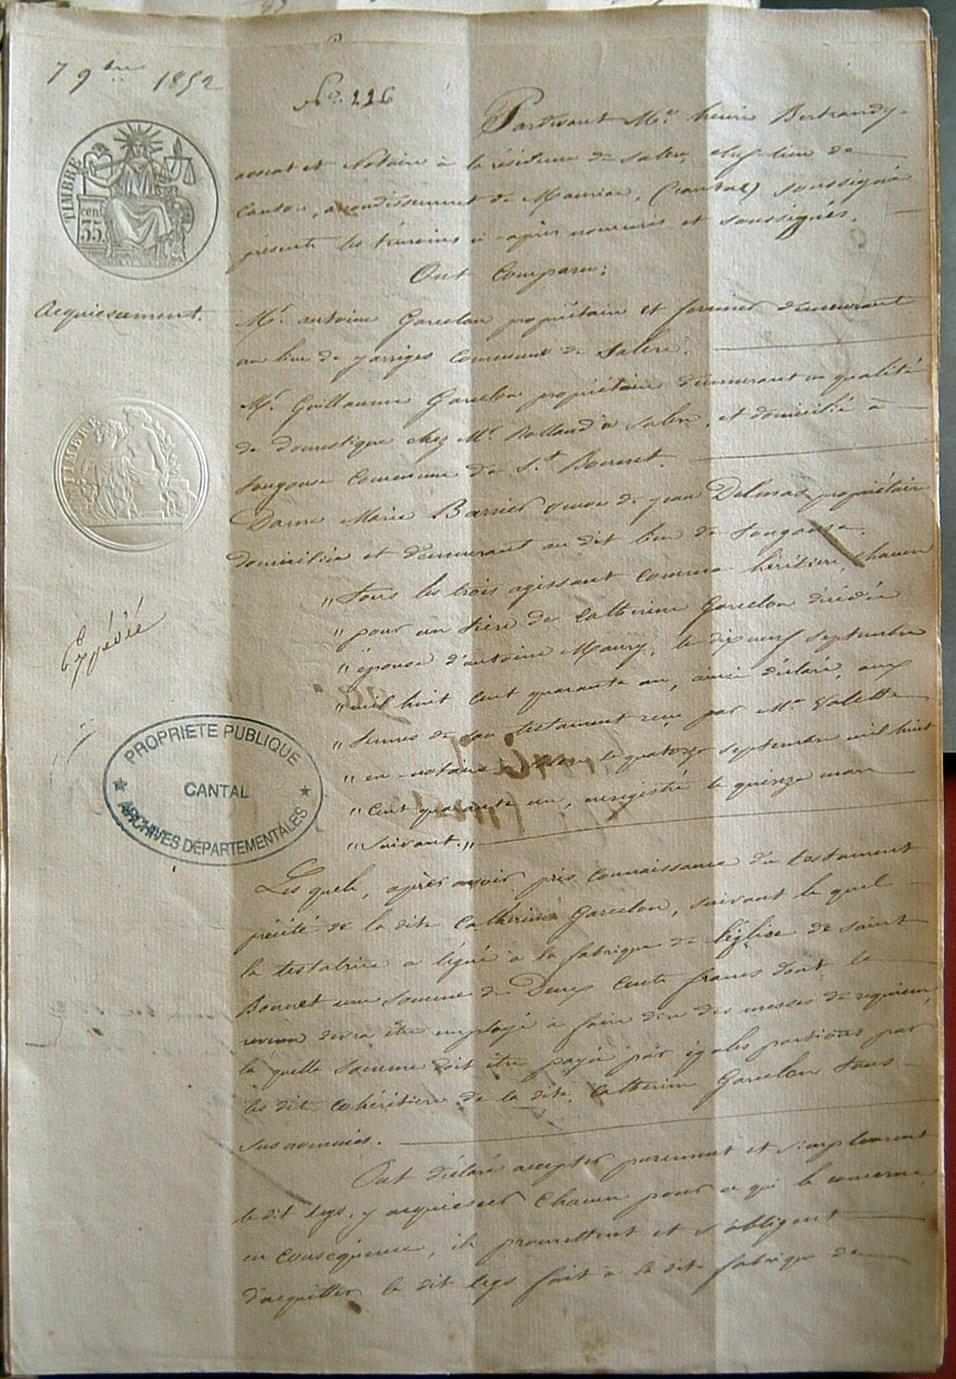 7 9bre 1852
No. 116
TIMBRE
cent 35
Acquiescement.
TIMBRE
Expédié
PROPRIETE PUBLIQUE
CANTAL
ARCHIVES DÉPARTEMENTALES
Pardevant Me. henri Bertrandy
avocat et Notaire à la résidence de Salers, chef-lieu de
Canton, arrondissement de Mauriac, (Cantal) soussigné
présents les témoins ci-après nommés et soussignés.
Ont Comparu:
Mr. antoine Garcelon propriétaire et fermier demeurant
au lieu de jarriges Commune de Salers.
Mr. Guillaume Garcelon propriétaire demeurant en qualité
de domestique chez Mr Rolland à Salers, et domicilié à
fougouse Commune de St. Bonnet.
Dame Marie Barrier veuve de jean Delmas propriétaire
domiciliée et demeurant au dit lieu de fougouse.
" Tous les trois agissant comme héritiers, chacun
" pour un tiers de Catherine Garcelon décédée
" épouse d'antoine Maury, le dix neuf septembre
" mil huit cent quarante un, ainsi déclaré, aux
" termes de son testament reçu par Me Valette
" en notaire à Salers le quatorze septembre mil huit
" Cent quarante un, enregistré le quinze mars
" suivant. "
Les quels, après avoir pris connaissance du testament
précité de la dite Catherine Garcelon, suivant le quel
la testatrice a légué à la fabrique de l'église de saint
Bonnet une somme de Deux Cents francs dont le
revenu devra être employé à faire dire des messes de requiem,
la quelle somme doit être payée par égales portions par
les dit cohéritiers de la dite Catherine Garcelon tous
sus nommés.
Ont déclaré accepter purement et simplement
le dit legs, y acquiescer chacun pour ce qui le concerne,
en conséquence, ils promettent et s'obligent
d'acquitter le dit legs fait à la dite fabrique de